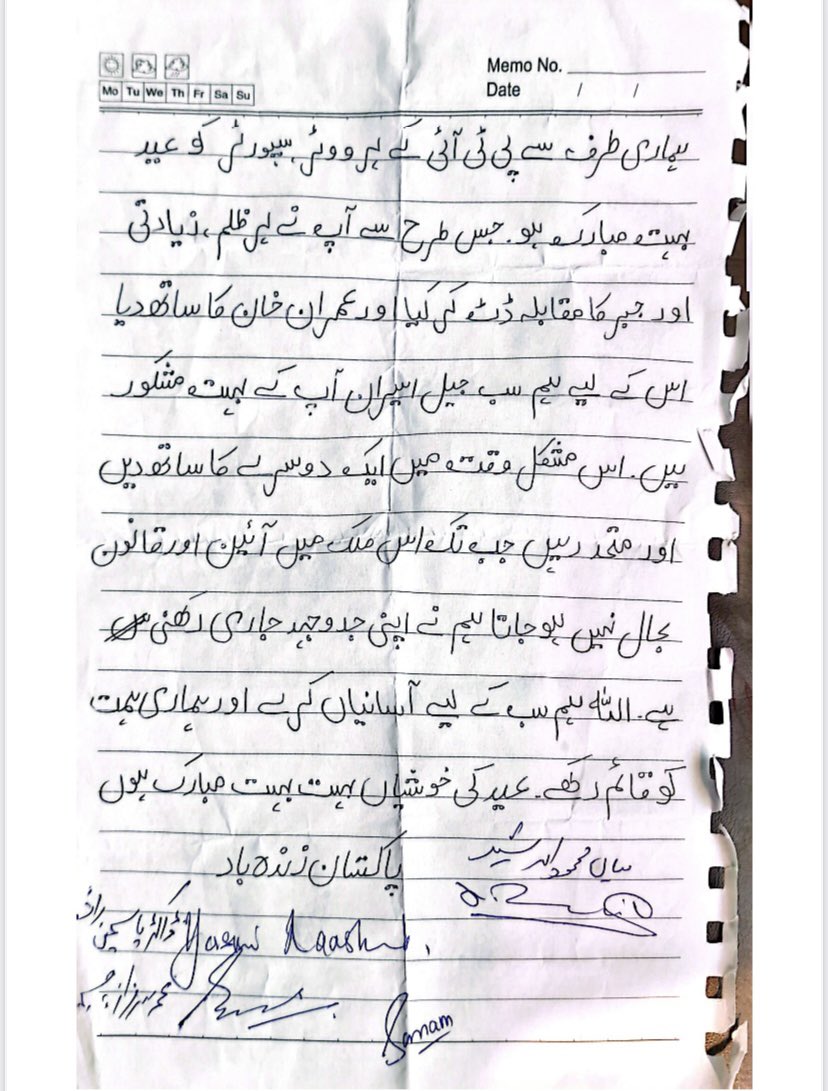 Memo No.
Mo Tu We Th Fr Sa Su
Date / /
ہماری طرف سے پی ٹی آئی کے ہر ووٹر، سپورٹر کو عید
بہت مبارک ہو۔ جس طرح سے آپ نے ہر ظلم، زیادتی
اور جبر کا مقابلہ ڈٹ کر کیا اور عمران خان کا ساتھ دیا
اس کے لیے ہم سب جیل اسیران آپ کے بہت مشکور
ہیں۔ اس مشکل وقت میں ایک دوسرے کا ساتھ دیں
اور متحد رہیں جب تک اس ملک میں آئین اور قانون
بحال نہیں ہو جاتا ہم نے اپنی جدوجہد جاری رکھنی
ہے۔ اللہ ہم سب کے لیے آسانیاں کرے اور ہماری ہمت
کو قائم رکھے۔ عید کی خوشیاں بہت بہت مبارک ہوں
پاکستان زندہ باد
میاں محمود الرشید
ڈاکٹر یاسمین راشد Yasmin Raashid
عمر سرفراز چیمہ
Sanam